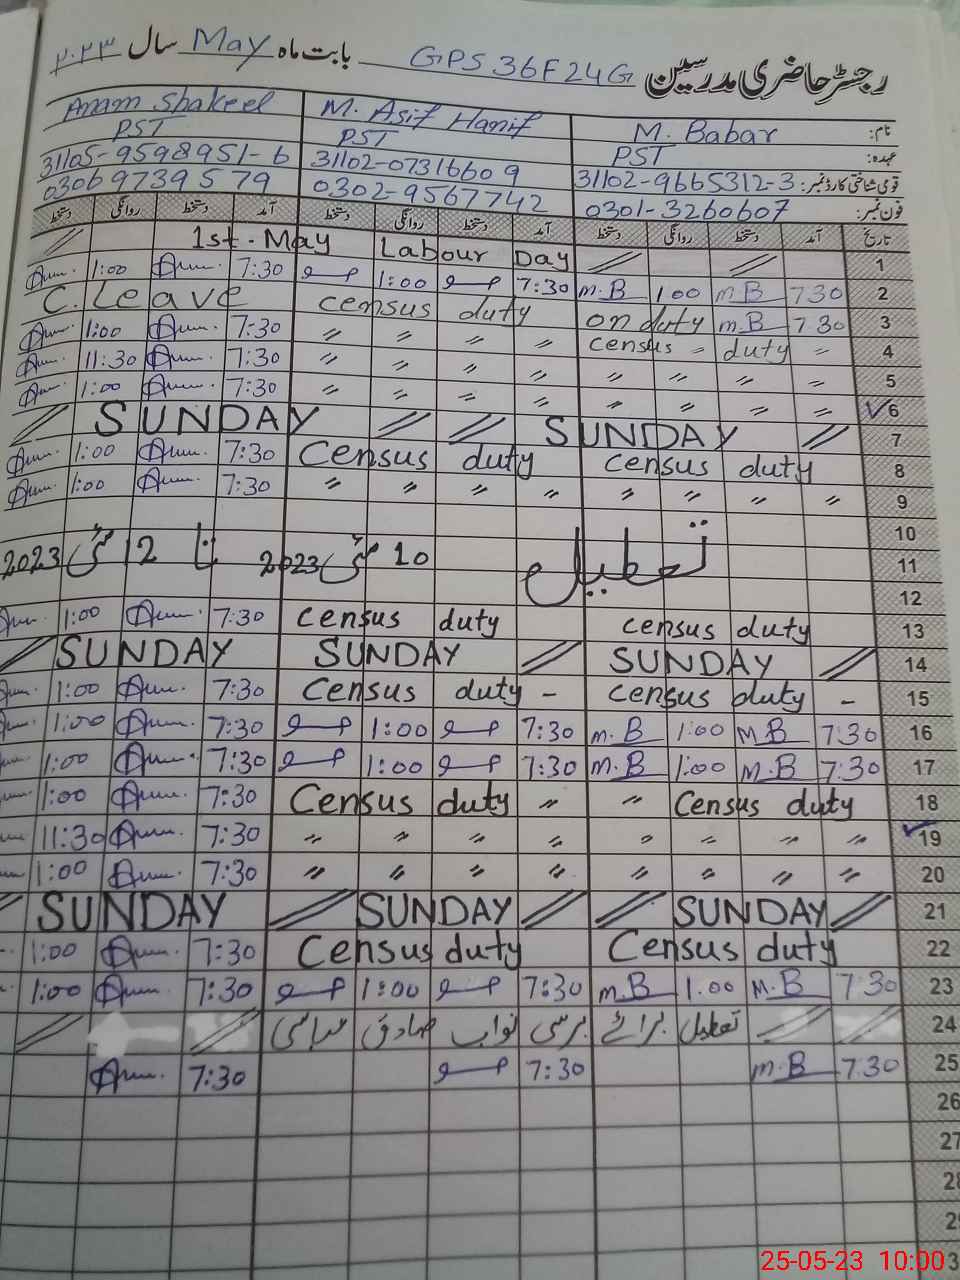 رجسٹر حاضری مدرسین GPS 36F24G بابت ماہ May سال ۲۰۲۳
نام: M. Babar M. Asif Hanif Anam Shakeel
عہدہ: PST PST PST
قومی شناختی کارڈ نمبر: 31102-9665312-3 31102-07316609 31105-9598951-6
فون نمبر: 0301-3260607 0302-9567742 03069739579
تاریخ آمد دستخط روانگی دستخط آمد دستخط روانگی دستخط آمد دستخط روانگی دستخط
1 1st - May Labour Day
2 7 30 M.B 1 00 m.B 7:30 1:00 7:30 1:00
3 7 30 m.B on duty census duty C. Leave
4 census = duty = 〃 〃 〃 〃 7:30 1:00
5 〃 〃 〃 〃 〃 〃 〃 〃 7:30 11:30
6 〃 〃 〃 〃 〃 〃 〃 〃 7:30 1:00
7 SUNDAY SUNDAY
8 census duty Census duty 7:30 1:00
9 〃 〃 〃 〃 〃 〃 〃 〃 7:30 1:00
10
11 تعطیل 10 مئی 2023 تا 12 مئی 2023
12
13 census duty census duty 7:30 1:00
14 SUNDAY SUNDAY SUNDAY
15 census duty - Census duty - 7:30 1:00
16 7:30 M.B 1:00 m.B 7:30 1:00 7:30 1:00
17 7:30 M.B 1:00 M.B 7:30 1:00 7:30 1:00
18 Census duty 〃 〃 Census duty 7:30 1:00
19 〃 〃 〃 〃 〃 〃 〃 〃 7:30 11:30
20 〃 〃 〃 〃 〃 〃 〃 〃 7:30 1:00
21 SUNDAY SUNDAY SUNDAY
22 Census duty Census duty 7:30 1:00
23 7 30 M.B 1.00 m.B 7:30 1:00 7:30 1:00
24 تعطیل برائے برسی نواب صادق عباسی
25 7 30 m.B 7:30 7:30
26
27
25-05-23 10:00